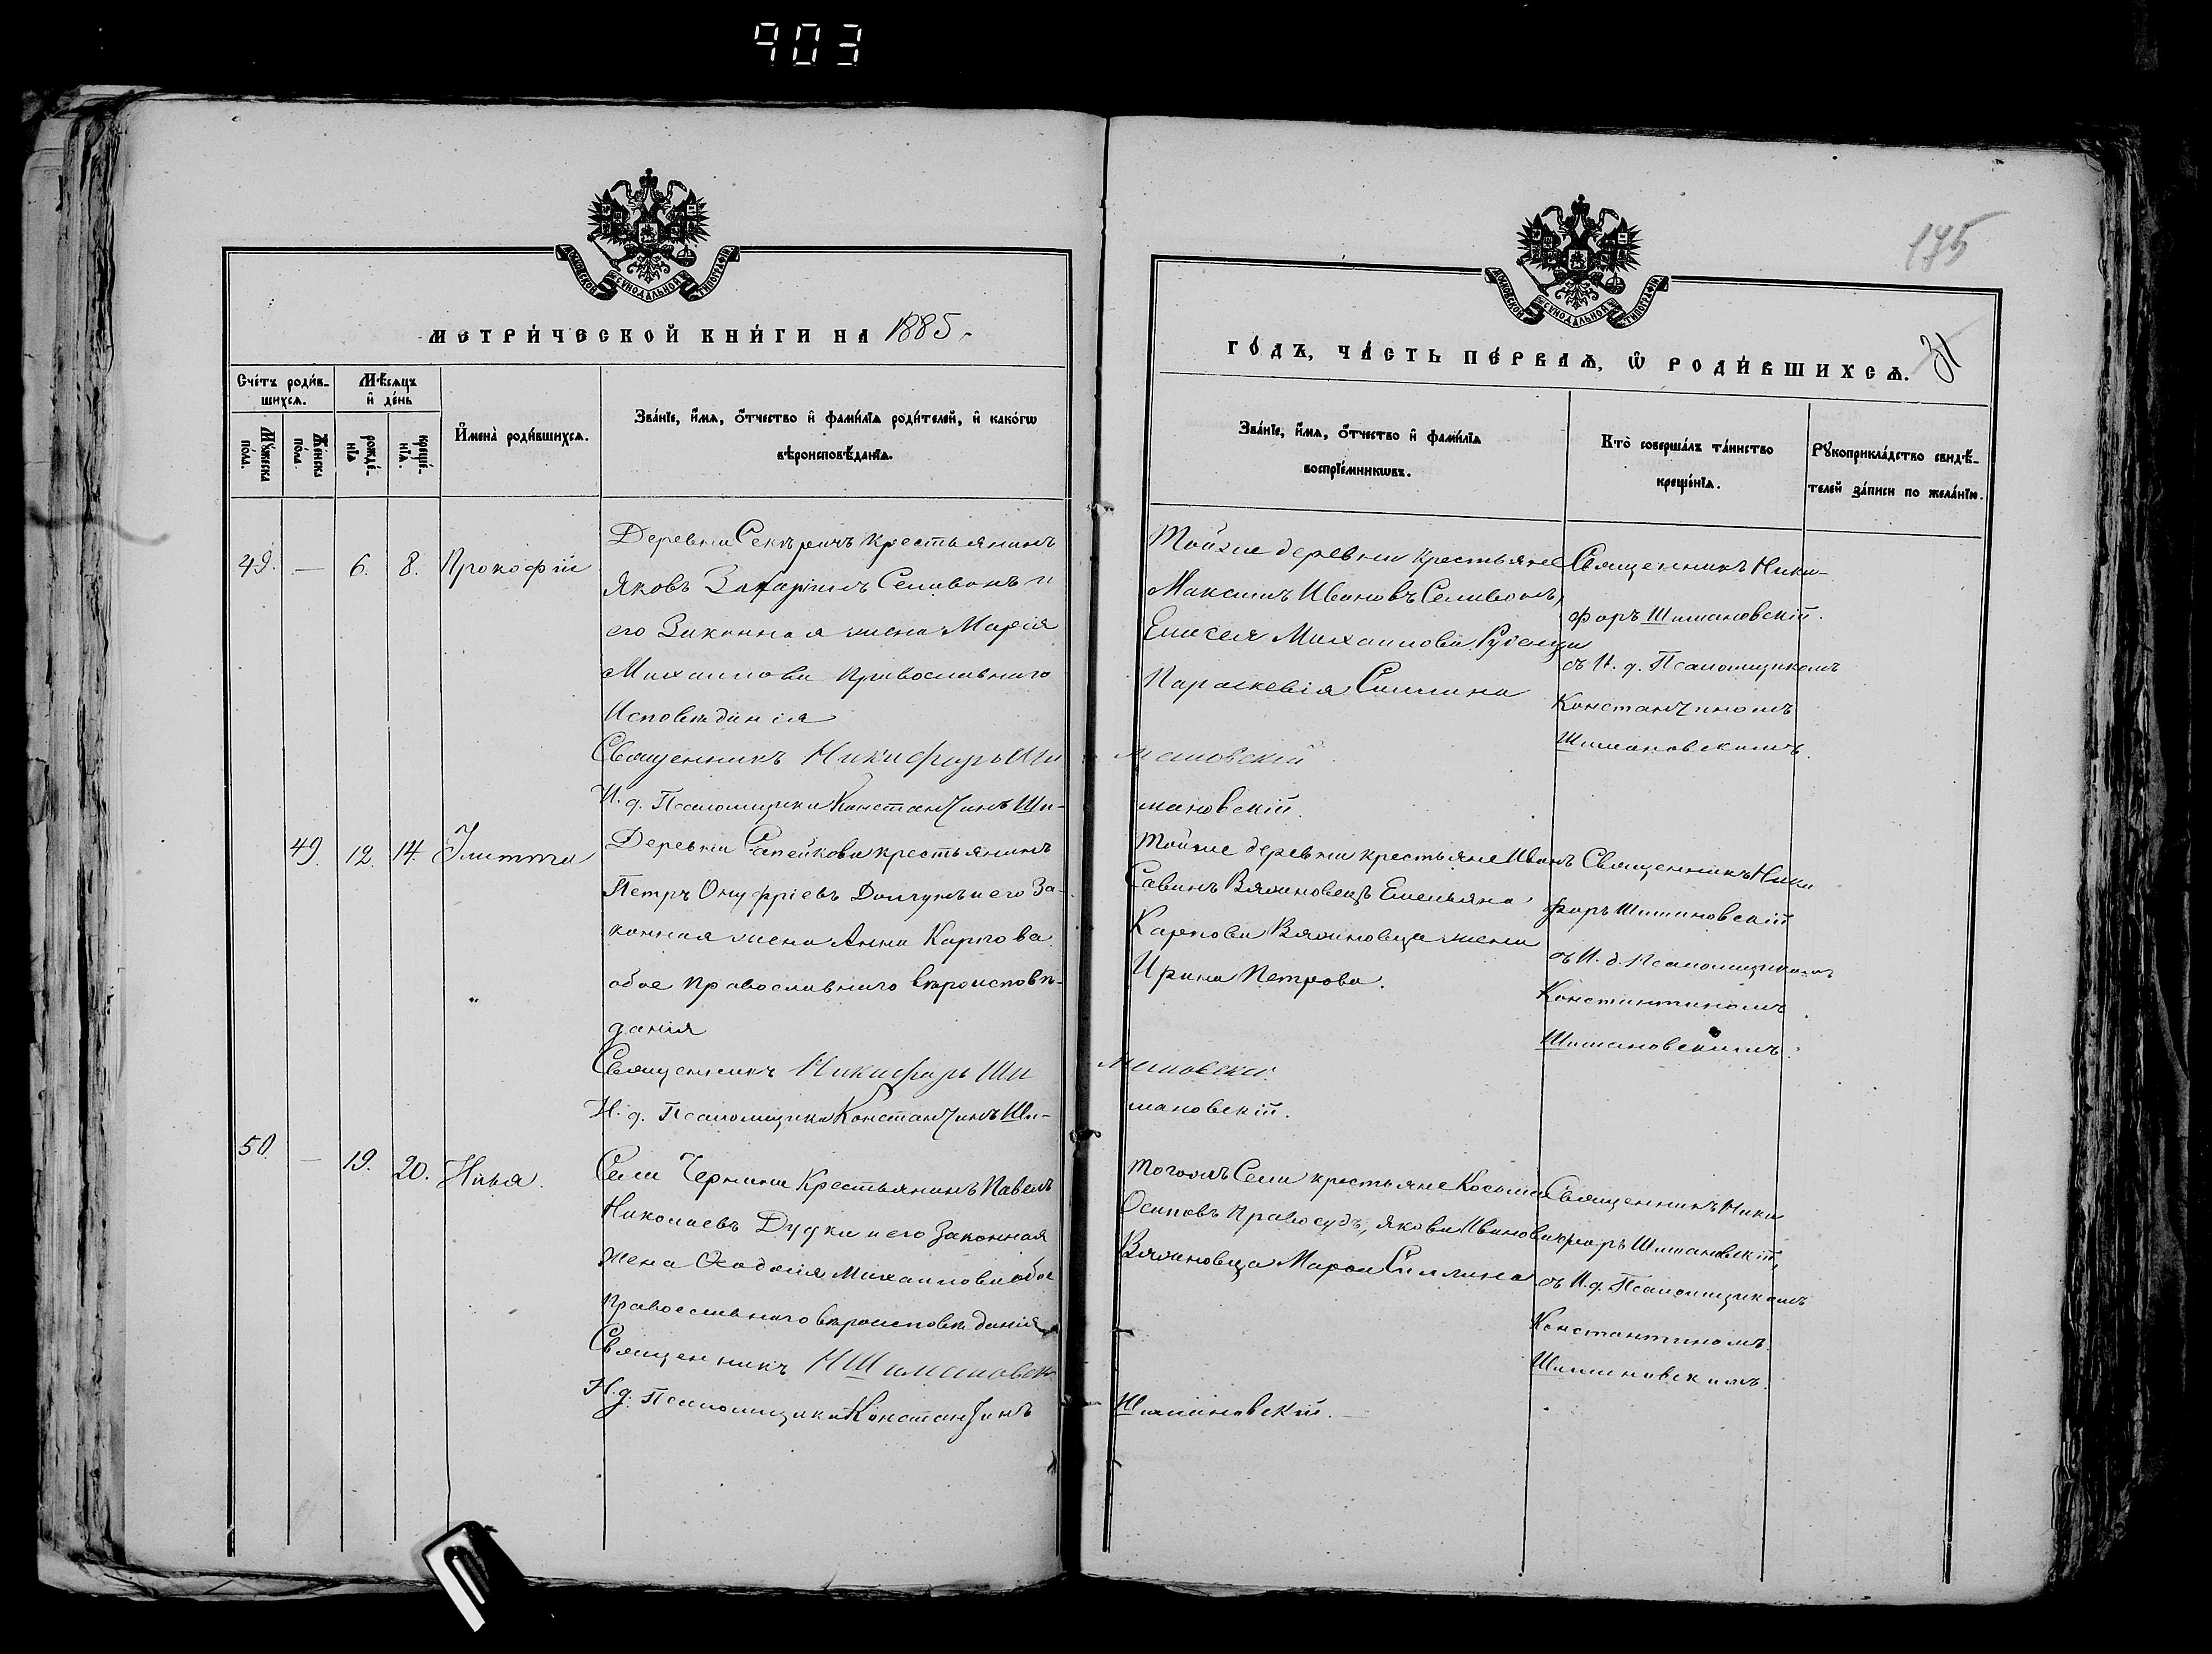 903
МОСКОВСКОЙ СѴНОДАЛЬНОЙ ТИПОГРАФІИ
МЕТРИ́ЧЕСКОЙ КНИ́ГИ НА 1885.
Сче́тъ роди́в-
шихсѧ.
Мѣ́сѧцъ
и҆ де́нь
Мꙋ́жеска
по́ла.
Же́нска
по́ла.
рожде́-
нїѧ
креще́-
нїѧ.
И҆мена̀ роди́вшихсѧ.
Зва́нїе, и҆́мѧ, ѻ҆́тчество и҆ фами́лїѧ роди́телей, и҆ како́гѡ
вѣроисповѣ́данїѧ.
49. — 6. 8. Прокофій
Деревни Секъричъ крестьянинъ
Яковъ Захаріинъ Селивонъ и
его Законная жена Марія
Михаилова Православнаго
Исповѣданія
Священникъ Никифоръ Ши
И. д. Псаломщика Константинъ Ши-
49. 12. 14. Улитта
Деревни Сапейкова крестьянинъ
Петръ Онуфріевъ Долгунъ и его За-
конная жена Анна Карпова
обое Православнаго вѣроисповѣ-
данія
Священникъ Никифоръ Ши
И. д. Псаломщика Константинъ Ши-
50. — 19. 20. Илья.
Села Чернина Крестьянинъ Павелъ
Николаевъ Дудка и его Законная
Жена Ѳеодосія Михаилова обое
Православнаго вѣроисповѣданія
Священникъ Н Шимановск
И. д. Псаломщика Константинъ
175
МОСКОВСКОЙ СѴНОДАЛЬНОЙ ТИПОГРАФІИ
ГО́ДЪ, ЧА́СТЬ ПЕ́РВАѦ, Ѡ҆ РОДИ́ВШИХСѦ. 31
Зва́нїе, и҆́мѧ, ѻ҆́тчество и҆ фами́лїѧ
воспрїе́мникѡвъ.
Кто̀ соверша́лъ та́инство
креще́нїѧ.
Рꙋкоприкла́дство свидѣ́-
телей за́писи по жела́нїю.
Тойже деревни крестьяне
Максимъ Ивановъ Селивонъ,
Елисея Михаилова Рубанца
Параскевія
Священникъ Ники-
форъ Шимановскій.
съ И. д. Псаломщикомъ
Константиномъ
Шимановскимъ.
мановскій
мановскій.
Тойже деревни крестьяне Иванъ
Савинъ Вяжновецъ Емельяна
Карпова Вяжновца жена
Ирина Петрова.
Священникъ Ники
форъ Шимановскій
съ И. д. Псаломщикомъ
Константиномъ
Шимановскимъ.
мановскі
мановскій.
Тогожъ Села крестьяне Косьма
Осиповъ Правосудъ, Якова Иванова
Вяжновца
Священникъ Ники
форъ Шимановскій,
съ И. д. Псаломщикомъ
Константиномъ
Шимановскимъ.
Шимановскій.